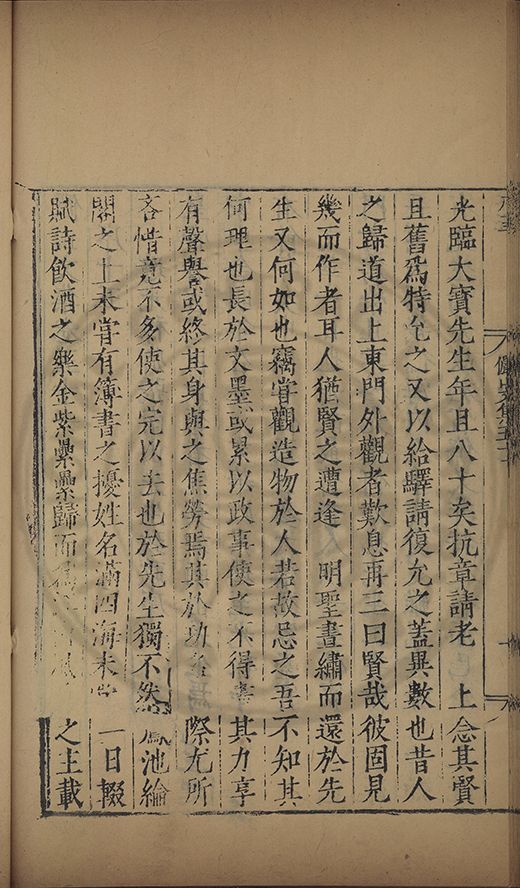 光臨大寶先生年且八十矣抗章請老 上念其賢
且舊爲特允之又以給驛請復允之蓋異數也昔人
之歸道出上東門外觀者歎息再三曰賢哉彼固見
幾而作者耳人猶賢之遭逢 明聖晝繡而還於先
生又何如也竊甞觀造物於人若故忌之吾不知其
何理也長於文墨或累以政事使之不得盡其力享
有聲譽或終其身與之焦勞焉其於功名際尤所
吝惜意不多使之完以去也於先生獨不然鳳池綸
閣之上未甞有簿書之擾姓名滿四海未甞一日輟
賦詩飲酒之樂金紫纍纍歸而 之主載